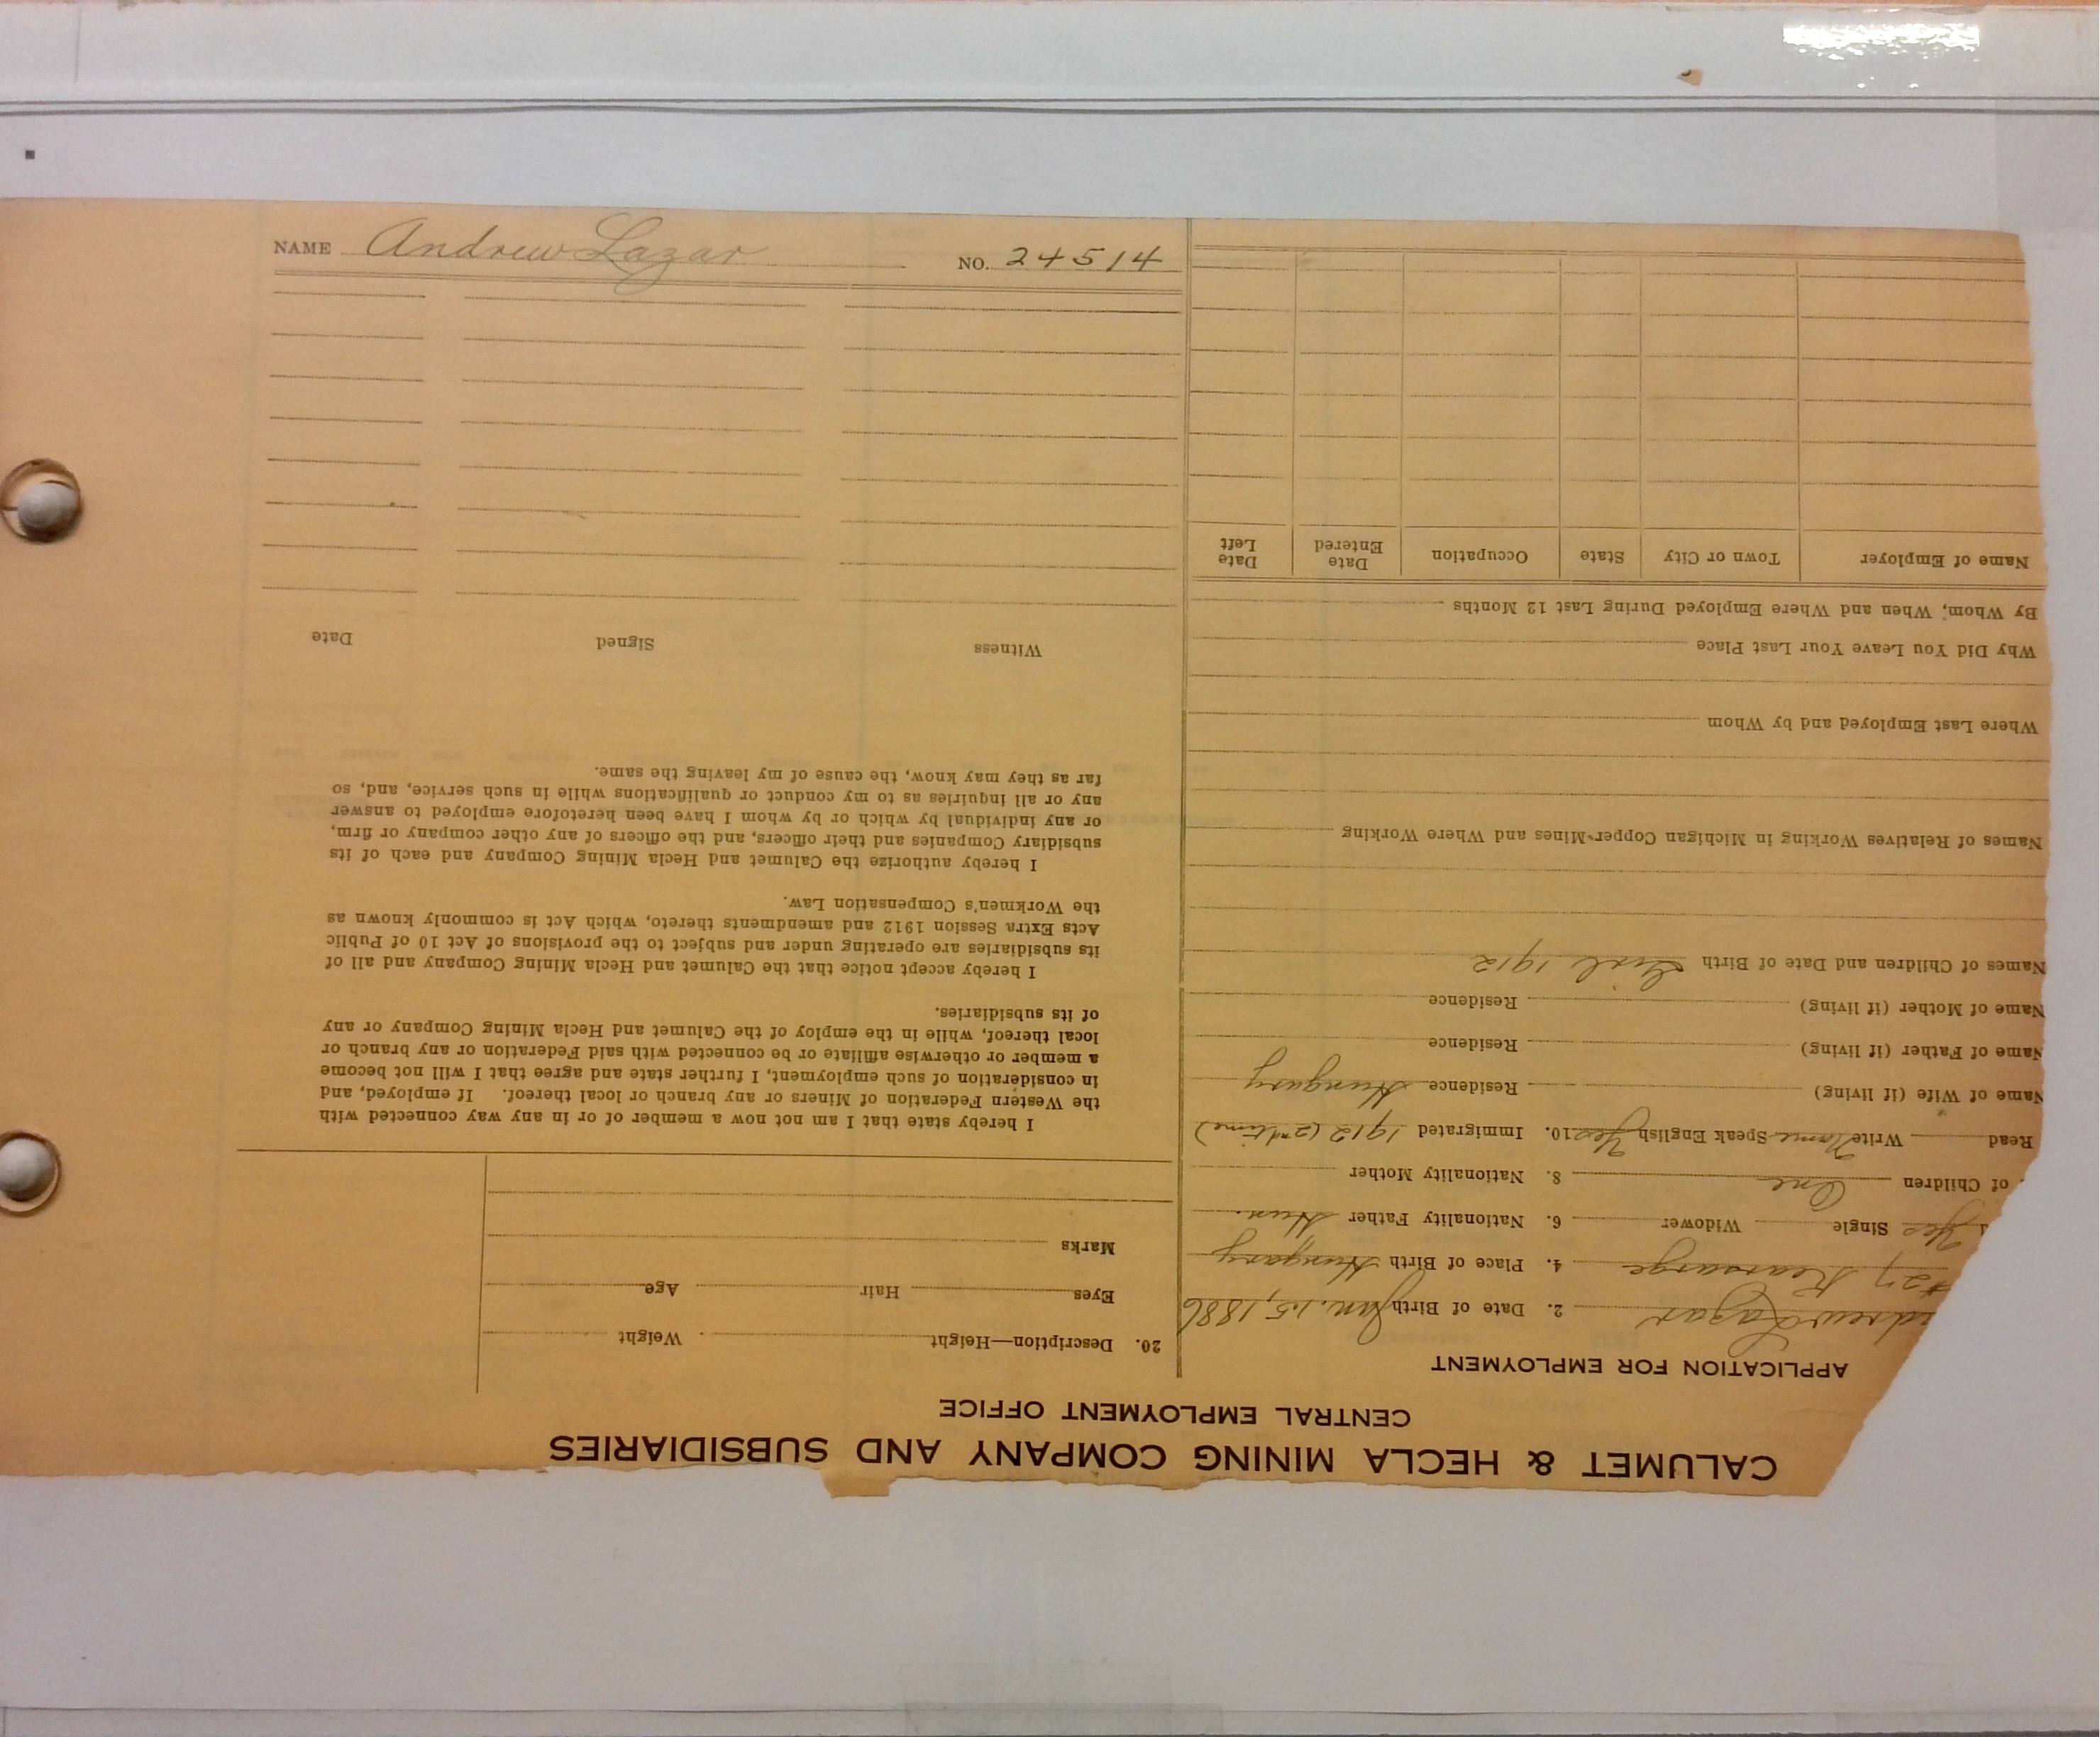 NAME Andrew Lazar NO. 24514
CALUMET & HECLA MINING COMPANY AND SUBSIDIARIES
CENTRAL EMPLOYMENT OFFICE
APPLICATION FOR EMPLOYMENT
drew Lazar 2. Date of Birth Jan. 15, 1886
#27 Kearsarge 4. Place of Birth Hungary
Yes Single Widower 6. Nationality Father Hun.
of Children One 8. Nationality Mother
Read Write None Speak English Yes 10. Immigrated 1912 (2nd time)
Name of Wife (if living) Residence Hungary
Name of Father (if living) Residence
Name of Mother (if living) Residence
Names of Children and Date of Birth Girl 1912
Names of Relatives Working in Michigan Copper Mines and Where Working
Where Last Employed and by Whom
Why Did You Leave Your Last Place
By Whom, When and Where Employed During Last 12 Months
Name of Employer Town or City State Occupation Date Entered Date Left
20. Description—Height Weight
Eyes Hair Age
Marks
I hereby state that I am not now a member of or in any way connected with
the Western Federation of Miners or any branch or local thereof. If employed, and
in consideration of such employment, I further state and agree that I will not become
a member or otherwise affiliate or be connected with said Federation or any branch or
local thereof, while in the employ of the Calumet and Hecla Mining Company or any
of its subsidiaries.
I hereby accept notice that the Calumet and Hecla Mining Company and all of
its subsidiaries are operating under and subject to the provisions of Act 10 of Public
Acts Extra Session 1912 and amendments thereto, which Act is commonly known as
the Workmen's Compensation Law.
I hereby authorize the Calumet and Hecla Mining Company and each of its
subsidiary Companies and their officers, and the officers of any other company or firm,
or any individual by which or by whom I have been heretofore employed to answer
any or all inquiries as to my conduct or qualifications while in such service, and, so
far as they may know, the cause of my leaving the same.
Witness Signed Date